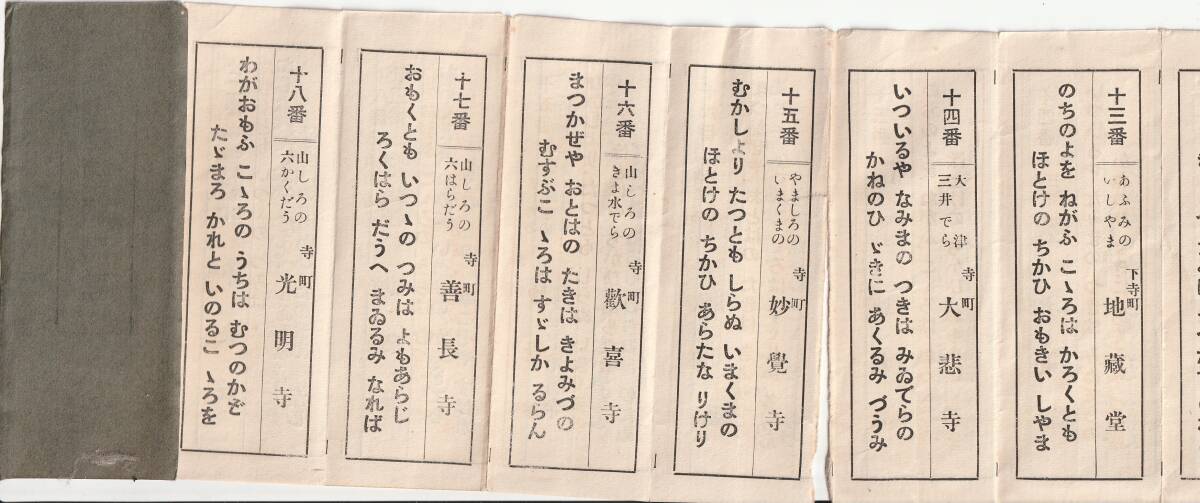 十三番
あふみの
いしやま
下寺町
地藏堂
のちのよを ねがふ こゝろは かろくとも
ほとけの ちかひ おもきい しやま
十四番
大津
三井でら
寺町
大悲寺
いついるや なみまの つきは みゐでらの
かねのひ ゞきに あくるみ づうみ
十五番
やましろの
いまくまの
寺町
妙覺寺
むかしより たつとも しらぬ いまくまの
ほとけの ちかひ あらたな りけり
十六番
山しろの
きよ水でら
寺町
歡喜寺
まつかぜや おとはの たきは きよみづの
むすぶこ ゝろは すゞしか るらん
十七番
山しろの
六はらだう
寺町
善長寺
おもくとも いつゝの つみは よもあらじ
ろくはら だうへ まゐるみ なれば
十八番
山しろの
六かくだう
寺町
光明寺
わがおもふ こゝろの うちは むつのかど
たゞまろ かれと いのるこ ゝろを